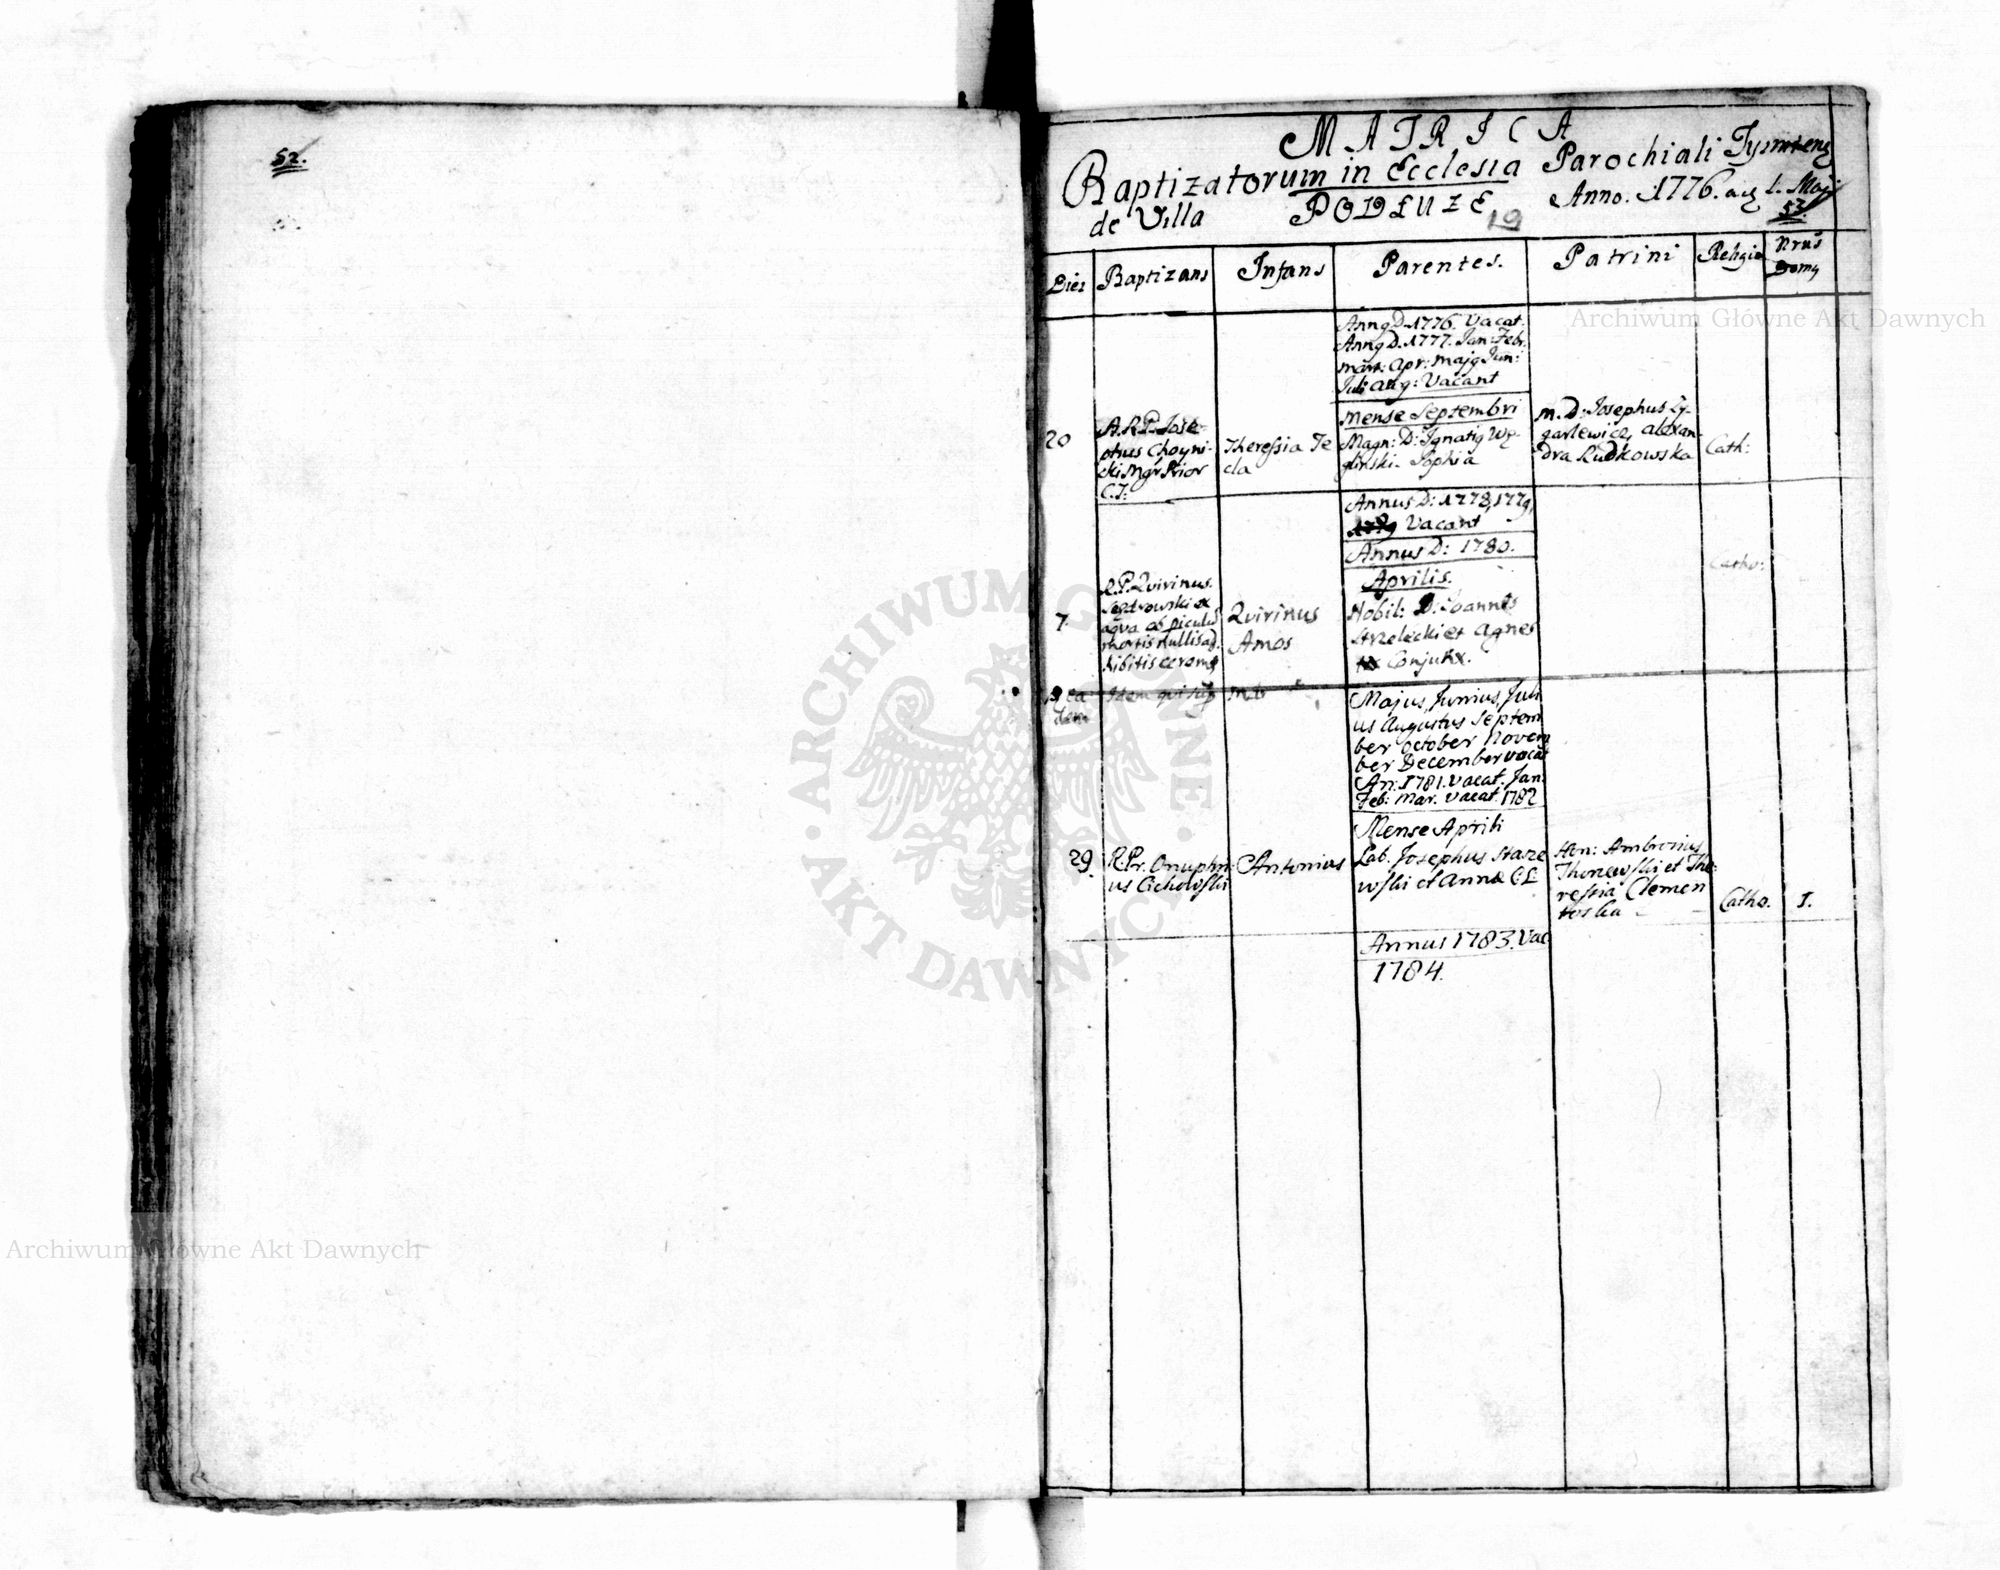 52.
MATRICA
Baptizatorum in Ecclesia Parochiali Tysmienz
de Villa PODŁUZE Anno. 1776. aij 1. Maji
19
53.
Dies
Baptizans
Infans
Parentes.
Patrini
Religio
Nrus
Domq
Annq D. 1776. Vacat.
Annq D. 1777. Jan: Febr:
Mart: Apr: Majq Jun:
Juli Aug: Vacant
Mense Septembri
20
A.R.P. Jose-
phus Choyni-
cki Mgr Prior
C.T:
Theressia Te
cla
Magn: D: Ignatiq Wę-
gliński - Sophia
M. D: Josephus Zy-
garlewicz, Alexan-
dra Rudkowska
Cath:
Annus D: 1778, 1779,
Vacant
Annus D: 1780.
Aprilis.
7.
R.P. Qvirinus
aqva ob piculu
mortis nullis ad
hibitis cerom
Qvirinus
Amos
Nobil: D: Joannes
Strzelecki et Agnes
Conjunx.
Catho:
ea
dem
Idem qui sup
Majus, Junius, Juli
us Augustus Septem
ber October Novem
ber December vacat
An: 1781. vacat. Jan:
Feb: Mar. vacat. 1782
Mense Aprili
29.
R. Pr. Onuphri
us Cichowski
Antonius
Lab. Josephus Stare
wski et Anna C.L.
Hon: Ambrosius
Thorewski et The
ressia Clemen
towska
Catho.
1.
Annus 1783. Vac
1784.
Archiwum Główne Akt Dawnych
Archiwum Główne Akt Dawnych
ARCHIWUM GŁÓWNE
AKT DAWNYCH